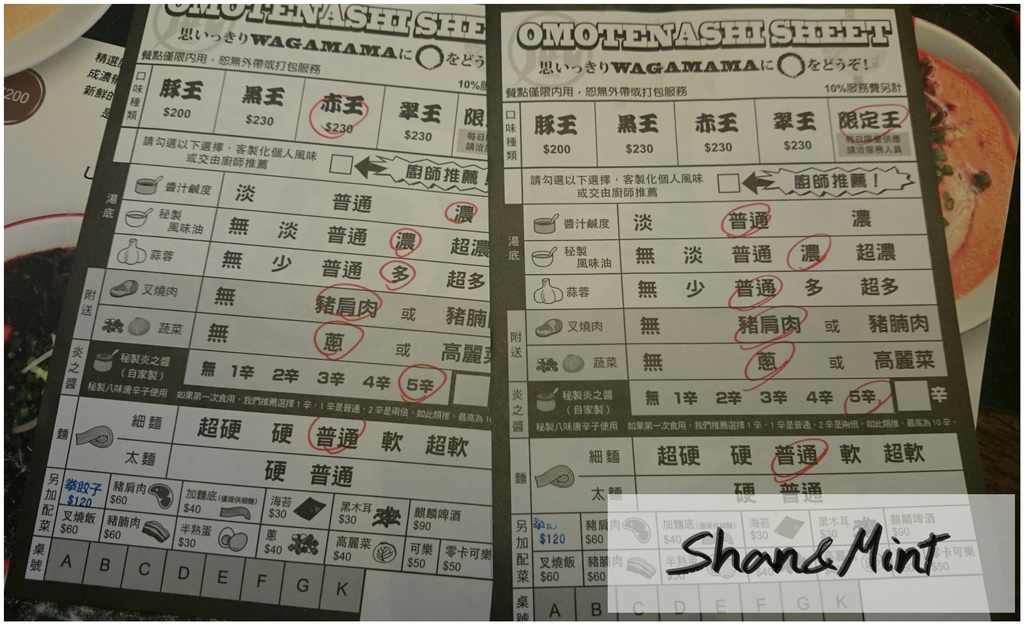 OMOTENASHI SHE
思いっきりWAGAMAMAに◯をどう
餐點僅限內用，恕無外帶或打包服務
10%服
口味種類
豚王 黒王 赤王 翠王 限
$200 $230 $230 $230
每日
請洽
請勾選以下選擇，客製化個人風味
或交由廚師推薦
廚師推薦！
湯底
醬汁鹹度 淡 普通 濃
秘製風味油 無 淡 普通 濃 超濃
蒜蓉 無 少 普通 多 超多
附送
叉燒肉 無 豬肩肉 或 豬腩
蔬菜 無 蔥 或 高麗菜
炎之醬
秘製炎之醬
（自家製）
無 1辛 2辛 3辛 4辛 5辛
秘製八味唐辛子使用 如果第一次食用，我們推薦選擇1辛，1辛是普通，2辛是兩倍，如此類推，最高為10
麵
細麵 超硬 硬 普通 軟 超軟
太麵 硬 普通
另加配菜
拳餃子 $120
豬肩肉 $60
加麵底(僅提供細麵) $40
海苔 $30
黑木耳 $30
麒麟啤酒 $90
叉燒飯 $60
豬腩肉 $60
半熟蛋 $30
蔥 $40
高麗菜 $40
可樂 $50
零卡可樂 $50
桌號
A B C D E F G K
精選
成濃
新鮮的
是
$200
OMOTENASHI SHEET
思いっきりWAGAMAMAに◯をどうぞ!
餐點僅限內用，恕無外帶或打包服務
10%服務費另計
口味種類
豚王 黒王 赤王 翠王 限定王
$200 $230 $230 $230
每日限量供應
請洽服務人員
請勾選以下選擇，客製化個人風味
或交由廚師推薦
廚師推薦！
湯底
醬汁鹹度 淡 普通 濃
秘製風味油 無 淡 普通 濃 超濃
蒜蓉 無 少 普通 多 超多
附送
叉燒肉 無 豬肩肉 或 豬腩肉
蔬菜 無 蔥 或 高麗菜
炎之醬
秘製炎之醬
（自家製）
無 1辛 2辛 3辛 4辛 5辛 辛
秘製八味唐辛子使用 如果第一次食用，我們推薦選擇1辛，1辛是普通，2辛是兩倍，如此類推，最高為10
麵
細麵 超硬 硬 普通 軟 超軟
太麵 硬 普通
另加配菜
$120
豬肩肉 $60
加麵底(僅提供細麵) $40
海苔 $30
黑木耳 $30
麒麟啤酒 $90
叉燒飯 $60
豬腩肉 $60
半熟
高麗菜
可樂 $50
零卡可樂 $50
桌號
A B C D E F G K
Shan&Mint